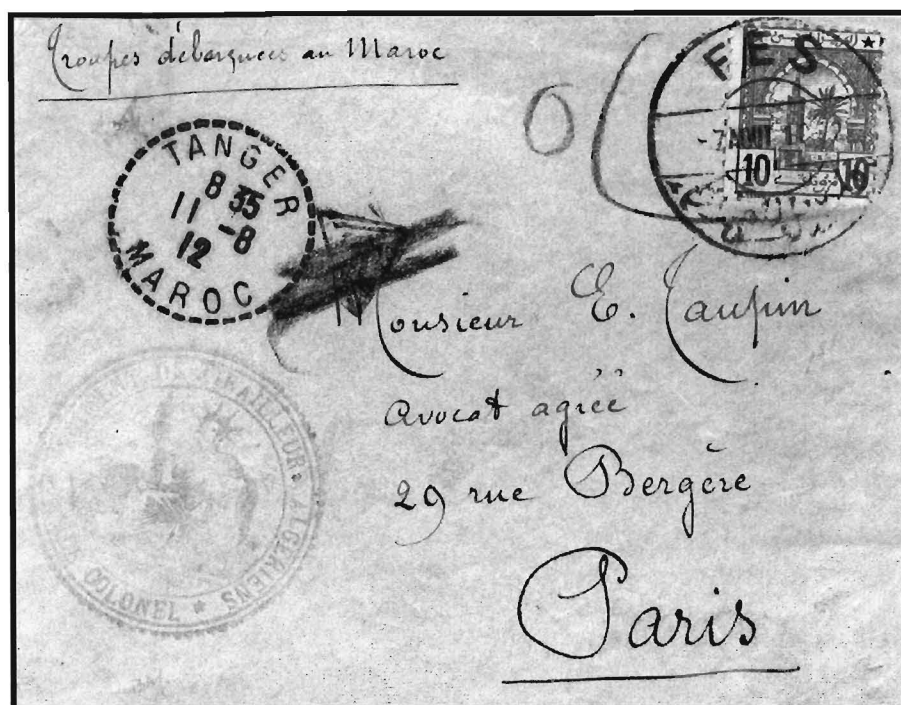 Troupes débarquées au Maroc
FES
-7 AOUT 12
10 10
O
TANGER
8 35
11 -8
12
MAROC
Monsieur E. Taupin
Avocat agréé
29 rue Bergère
Paris
DE TIRAILLEURS ALGERIENS
* COLONEL *